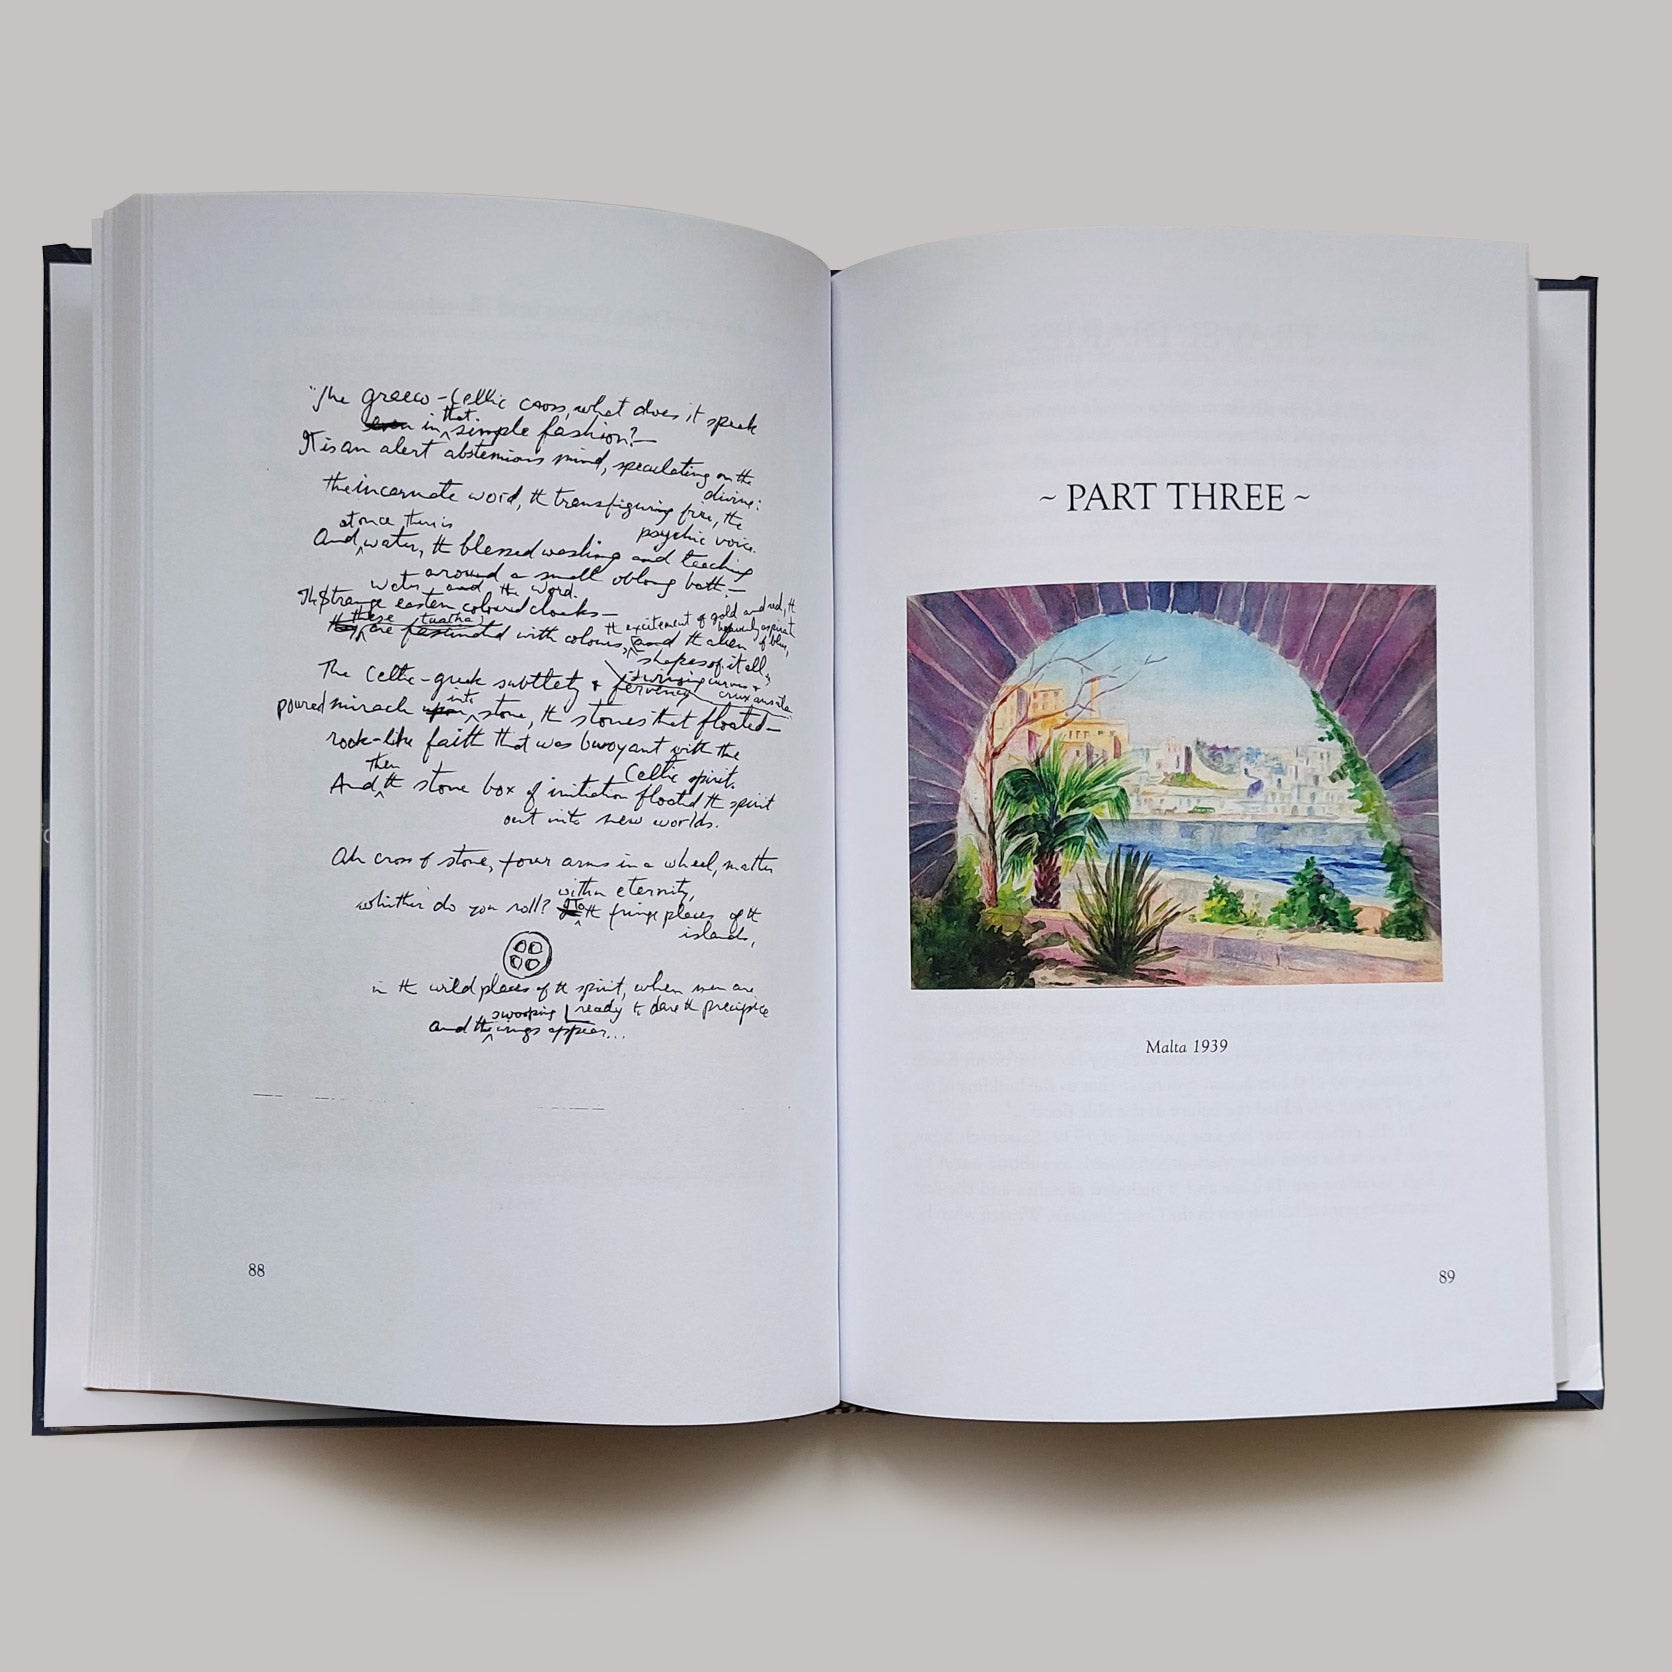 "The greeco-Celtic cross, what does it speak
even in that simple fashion?—
It is an alert abstemious mind, speculating on the
divine:
the incarnate word, tt transfiguring fire, the
psychic voice.
at once there is
And water, tt blessed washing and teaching
around a small oblong bath.—
water and the Word.
Th Strange eastern coloured cloaks—
these (tuatha)
they are fascinated with colours, tt excitement of gold and red, tt
heavenly aspirat
of blue,
and tt alien
shapes of it all,
The Celtic-greek subtlety & fervency
swinging curves &
crux ansata
poured miracle upon into stone, tt stones that floated—
rock-like faith that was buoyant with the
Celtic spirit.
then
And tt stone box of initiation floated tt spirit
out into new worlds.
Oh cross of stone, four arms in a wheel, matter
within eternity,
whither do you roll? To tt fringe places of tt
islands,
in tt wild places of tt spirit, when men are
ready to dare tt precipice
and tt swooping wings appear...
88
~ PART THREE ~
Malta 1939
89